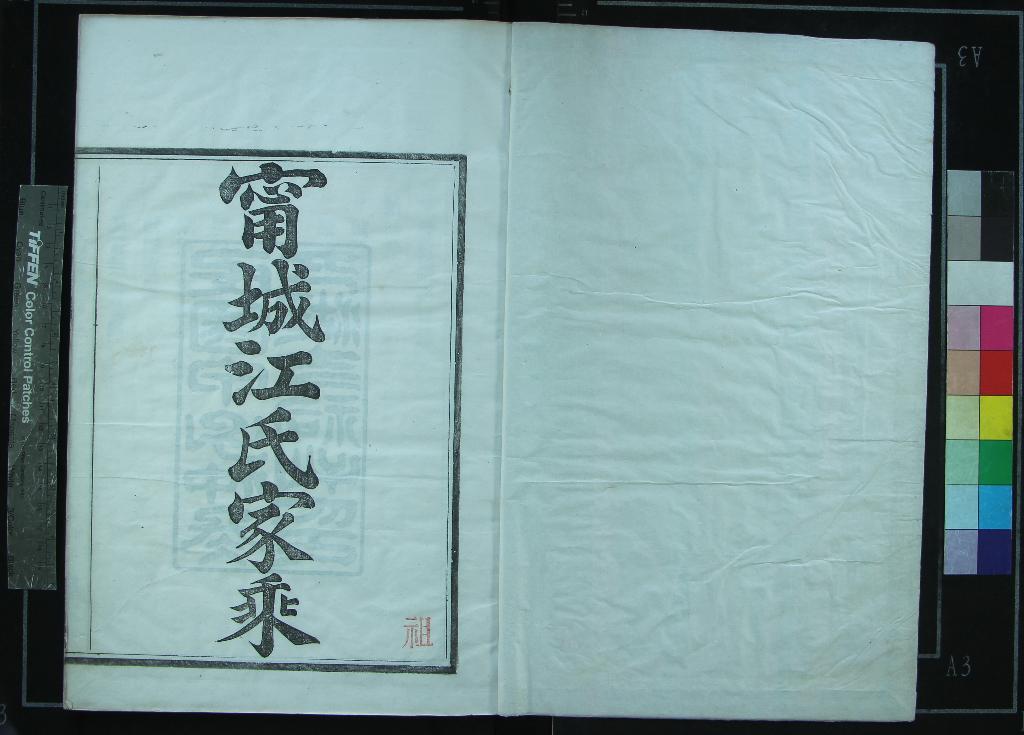 甯城江氏家乘
祖
TIFFEN Color Control Patches
A3
A3